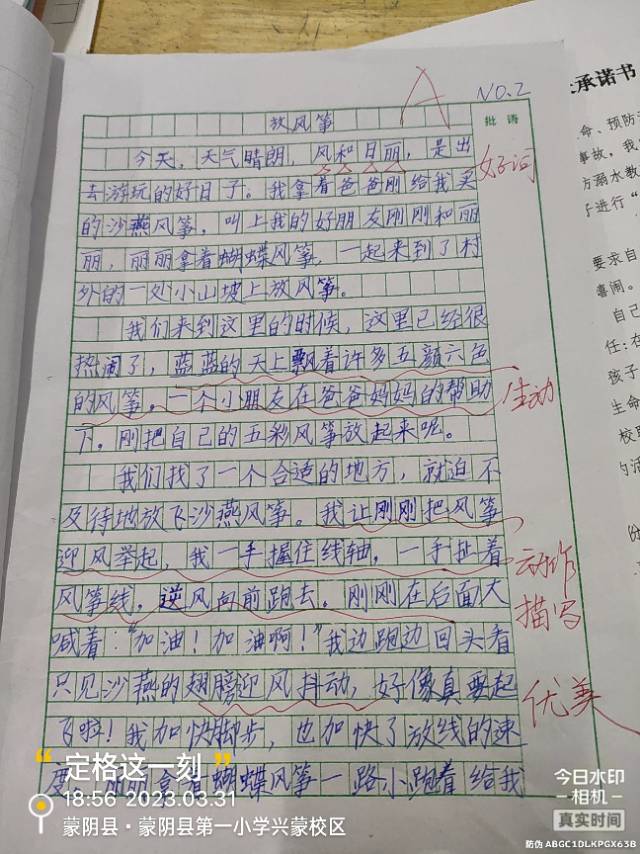 A
NO.2
批语
放风筝
今天，天气晴朗，风和日丽，是出
好词
去游玩的好日子。我拿着爸爸刚给我买
的沙燕风筝，叫上我的好朋友刚刚和丽
丽，丽丽拿着蝴蝶风筝，一起来到了村
外的一处小山坡上放风筝。
我们来到这里的时候，这里已经很
热闹了，蓝蓝的天上飘着许多五颜六色
的风筝。一个小朋友在爸爸妈妈的帮助
生动
下。刚把自己的五彩风筝放起来呢。
我们找了一个合适的地方，就迫不
及待地放飞沙燕风筝。我让刚刚把风筝
迎风举起，我一手握住线轴，一手扯着
动作
风筝线，逆风向前跑去。刚刚在后面大
描写
喊着："加油！加油啊！"我边跑边回头看
只见沙燕的翅膀迎风抖动，好像真要起
优美
飞啦！我加快脚步，也加快了放线的速
度。丽丽拿着蝴蝶风筝一路小跑着给我
承诺书
命、预防
事故，我
方溺水教
子进行"
要求自
喜闹。
自己
任：在
孩子
生命
校
的活
份
定格这一刻
18:56 2023.03.31
蒙阴县·蒙阴县第一小学兴蒙校区
今日水印
-相机-
真实时间
防伪 ABGC1DLKPGX63B